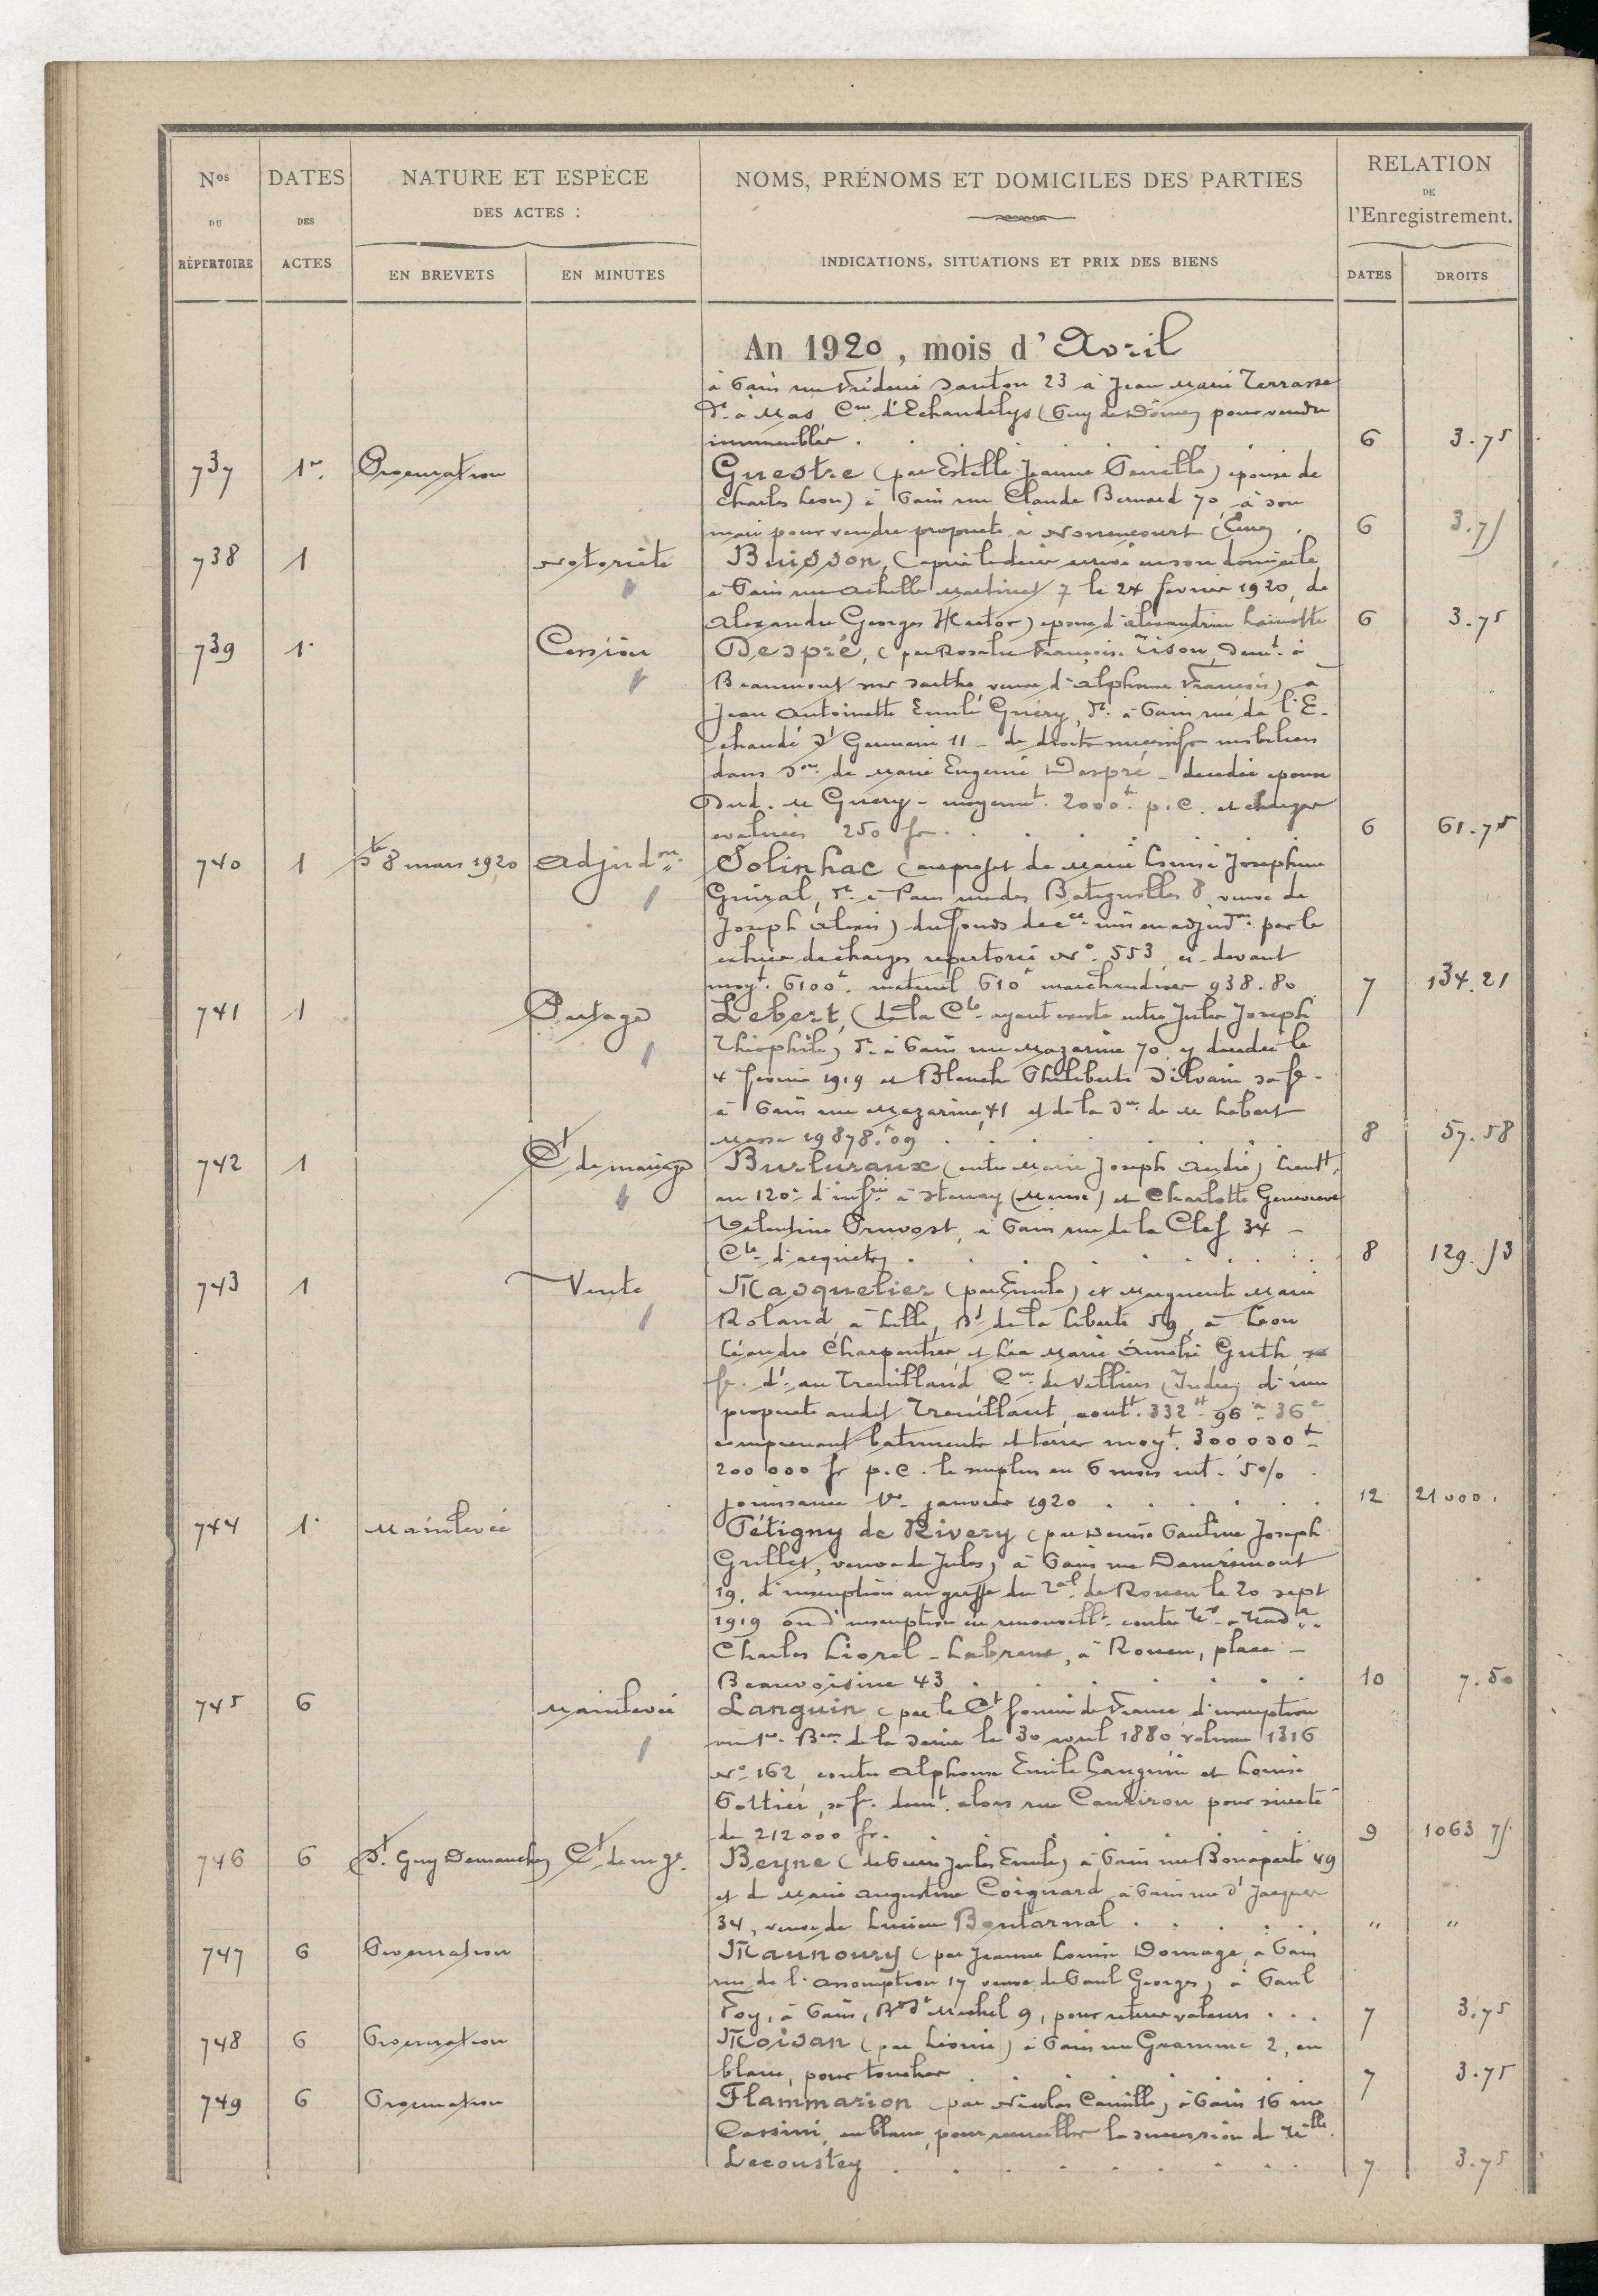 Nos DU RÉPERTOIRE
DATES DES ACTES
NATURE ET ESPÈCE DES ACTES :
EN BREVETS
EN MINUTES
NOMS, PRÉNOMS ET DOMICILES DES PARTIES
INDICATIONS, SITUATIONS ET PRIX DES BIENS
RELATION DE l'Enregistrement.
DATES
DROITS
An 1920, mois d'Avril
à Paris rue Frédéric Sauton 23 à Jean Marie Terrasse
dt à Mas Cne d'Echandelys (Puy de Dôme) pour vendre
immeubles . 6 3.75
737 1er Procuration Guestre (par Estelle Jeanne épouse de
Charles Léon) à Paris rue Claude Bernard 70, à son
mari pour vendre propriété à Nonencourt (Eure) . 6 3.75
738 1 Notoriété Buisson, (après le décès arrivé en son domicile
à Paris rue Achille Martinet 7 le 24 février 1920, de
Alexandre Georges Hector) époux d'Alexandrine Lainotte 6 3.75
739 1 Cession Despré, (par Rosalie Françoise Tison, demt à
Beaumont sur Sarthe, veuve d'Alphonse François) à
Jean Antoinette Emile Guéry, dt à Paris rue de l'E-
chaudé St Germain 11 - de droits successifs mobiliers
dans Son de Marie Eugénie Despré - décédée épouse
dud. M Guéry - moyennt 2000f p.c. et charges
évaluées 250 fr . 6 61.75
740 1 Ste 8 mars 1920 Adjudon Solinhac (au profit de Marie Louise Joséphine
Guiral, dt à Paris rue des Batignolles 8, veuve de
Joseph Alexis) du fonds de cce mis en adjudon par le
cahier de charges répertorié No 553, ci-devant
moyt 6100f matériel 610f marchandises 938.80 7 134.21
741 1 Partage Lebert, (de la Cté ayant existé entre Jules Joseph
Théophile) dt à Paris rue Mazarine 70 y décédé le
4 février 1919 et Blanche Philiberte Silvain sa fe -
à Paris rue Mazarine, 41 et de la Son de M Lebert
Masse 19878f09 . 8 57.58
742 1 Ct de mariage Burluraux (entre Marie Joseph André) Lieutt,
au 120e d'infie à Stenay (Meuse) et Charlotte Geneviève
Valentine Pruvost, à Paris rue de la Clef 34 -
Cté d'acquêts . 8 129.53
743 1 Vente Masquelier (par Emile) et Marguerite Marie
Roland, à Lille, Bd de la Liberté 59, à Léon
Léandre Charpentier et Léa Marie Amélie Guth sa
fe. dt au Trouilland Cne de Velliers (Indre) d'une
propriété audit Trouillant, contt 332H 96a 36c
comprenant bâtiments et terres moyt 300000f
200000 fr p.c. le surplus en 6 mois int. 5%
jouissance 1er janvier 1920 . 12 21000.
744 1 Mainlevée Pétigny de Rivery (par Denise Pauline Joseph
Grillet, veuve de Jules) à Paris rue Damrémont
19, d'inscription au greffe du Tal de Rouen le 20 sept
1919 ou d'inscription en renouvellt contre
Charles Liorel-Labrene, à Rouen, place -
Beauvoisine 43 . 10 7.50
745 6 Mainlevée Languin (par le Ct foncier de France d'inscription
au 1er Beau de la Seine le 30 avril 1880 volume 1316
No 162, contre Alphonse Emile Languin et Louise
Pottier, sa f. demt alors rue pour sûreté
de 212000 fr. 9 1063 75
746 6 St Guy Demanche Ct de mge Beyne (de Pierre Jules Emile) à Paris rue Bonaparte 49
et de Marie Augustine Coignard à Paris rue St Jacques
34, veuve de Lucien Bontarnal . " "
747 6 Procuration Maunoury (par Jeanne Louise Domage, à Paris
rue de l'Assomption 17 veuve de Paul Georges) à Paul
Foy, à Paris, Bd St Michel 9, pour retirer valeurs . . . 7 3.75
748 6 Procuration Moisan (par Léonie) à Paris rue Gramme 2, en
blanc, pour toucher . 7 3.75
749 6 Procuration Flammarion (par Nicolas Camille) à Paris 16 rue
Cassini, en blanc, pour recueillir la succession de Melle
Lecoustey . 7 3.75